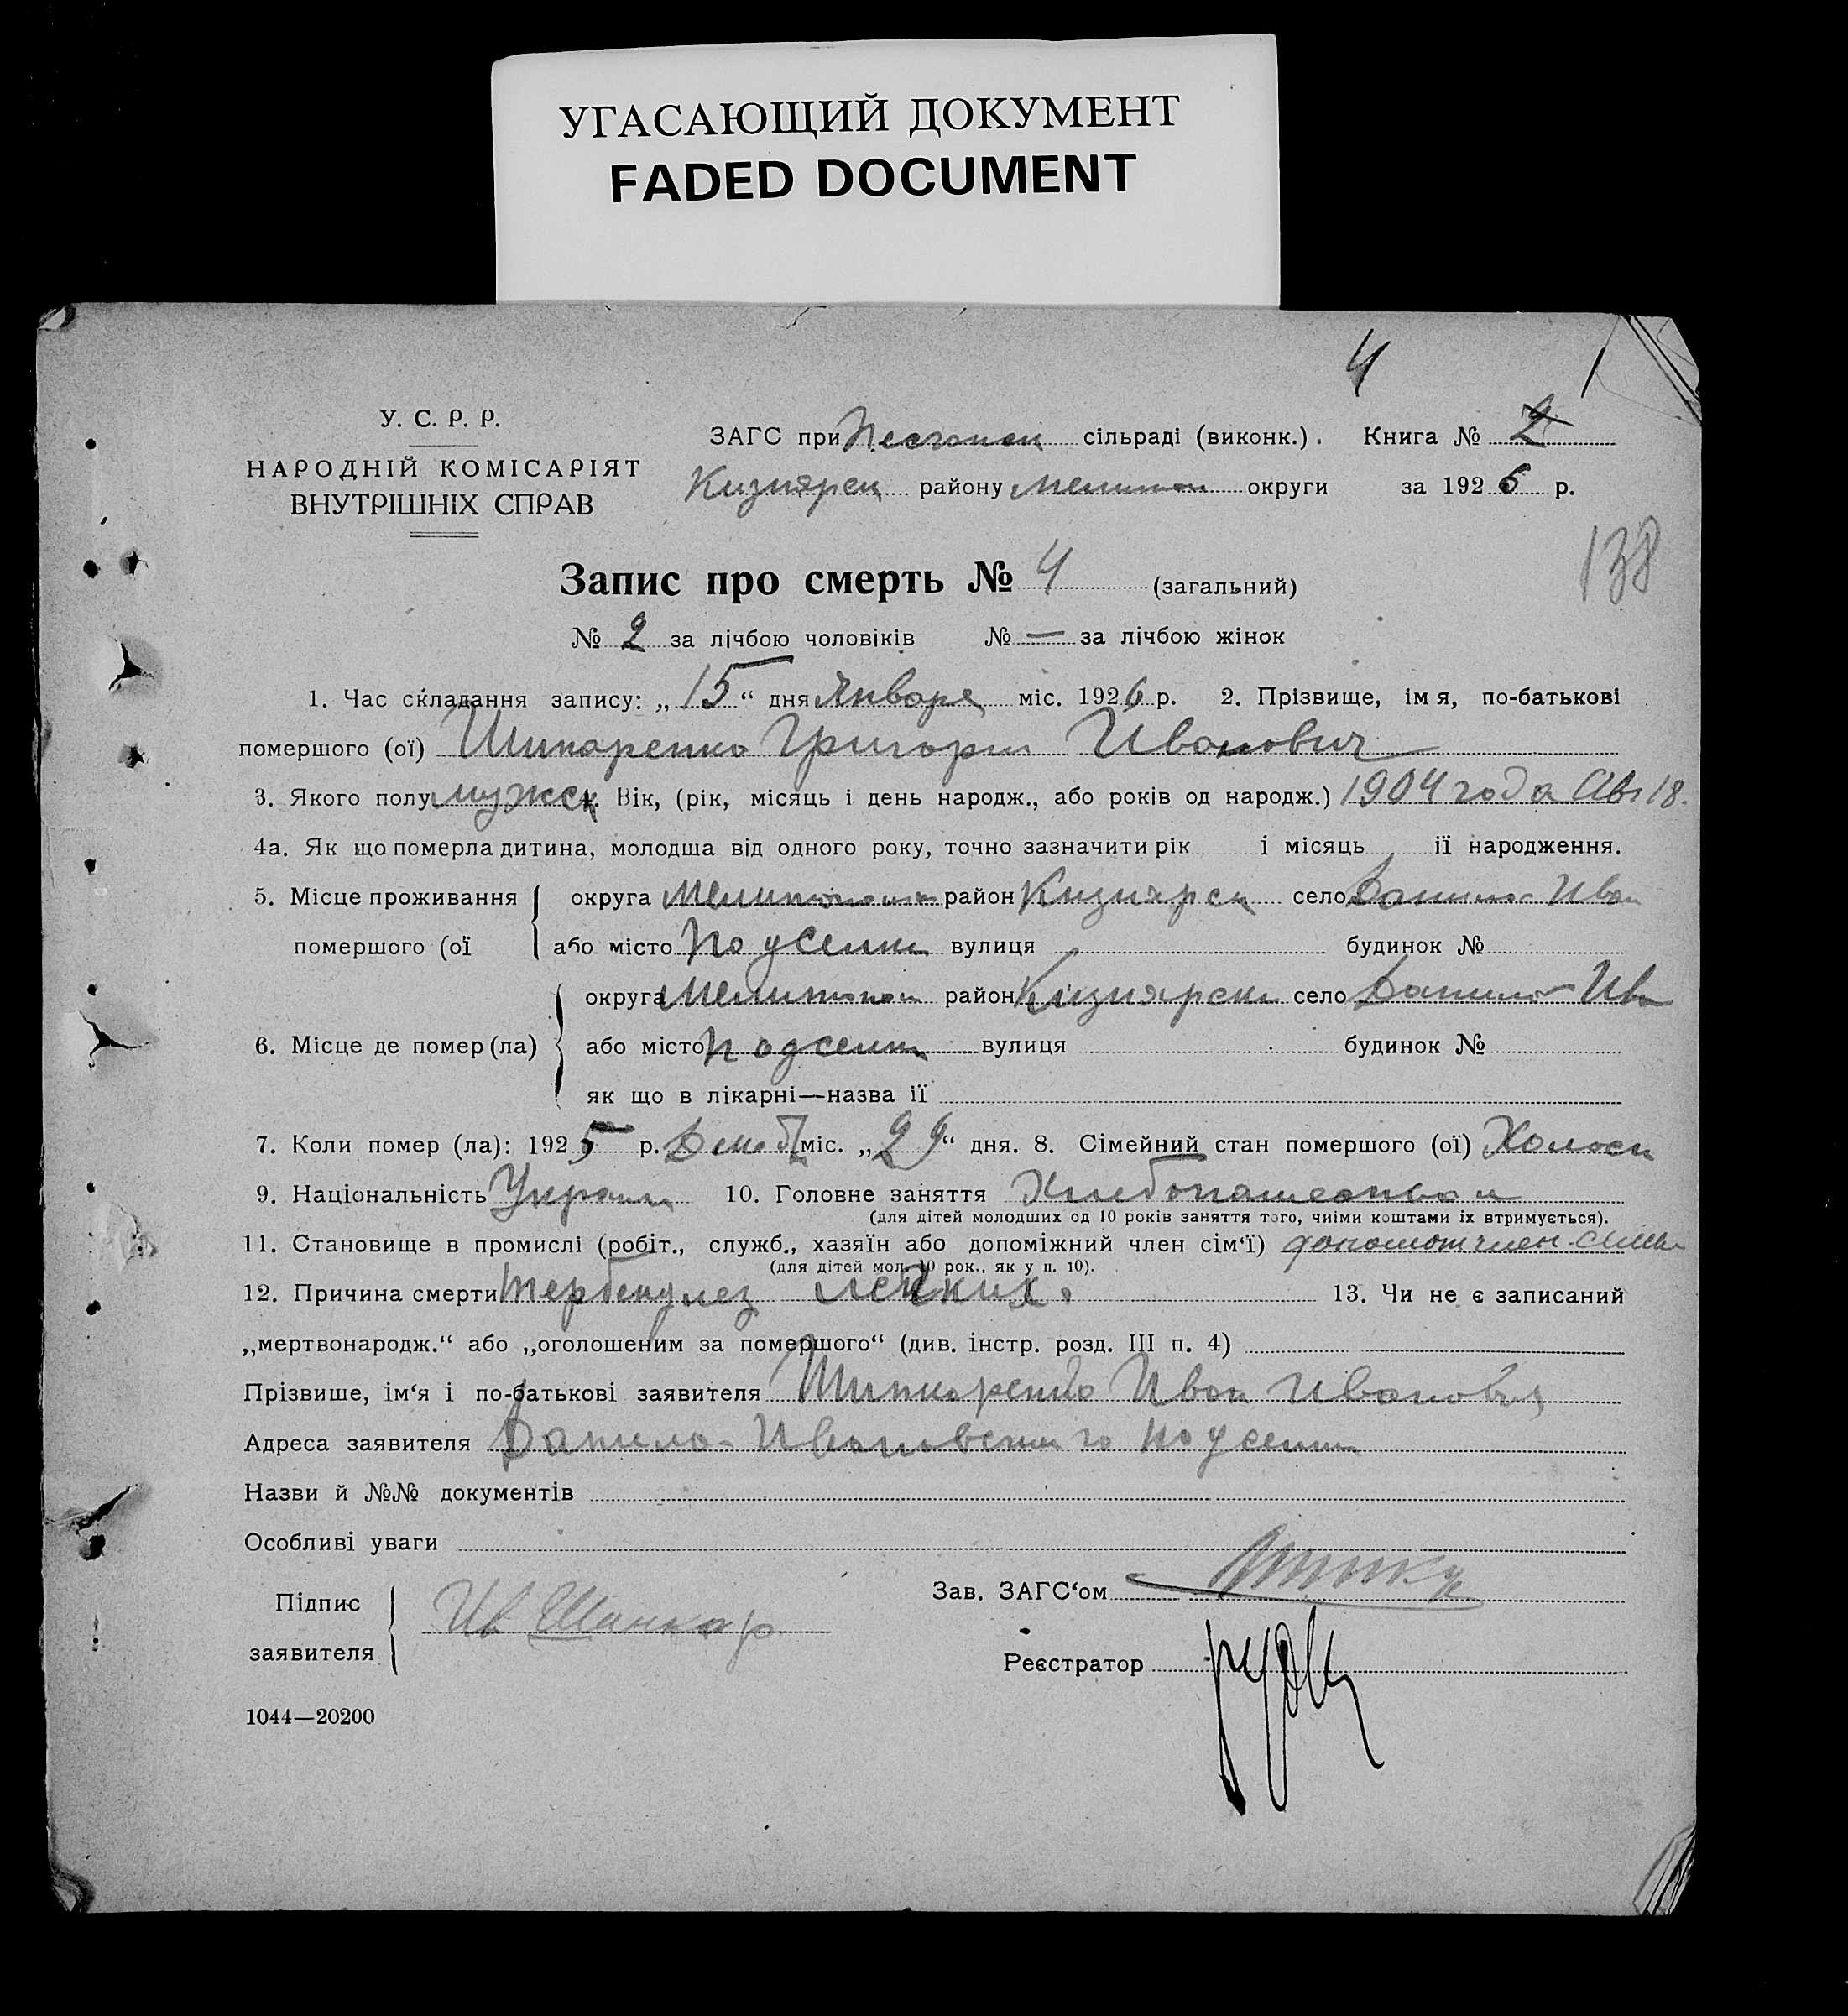 УГАСАЮЩИЙ ДОКУМЕНТ
FADED DOCUMENT
4
У. С. Р. Р.
НАРОДНІЙ КОМІСАРІЯТ
ВНУТРІШНІХ СПРАВ
ЗАГС при сільраді (виконк.). Книга № 2
Кизиярск району Мелитоп округи за 1926 р.
138
Запис про смерть № 4 (загальний)
№ 2 за лічбою чоловіків № — за лічбою жінок
1. Час складання запису: „15“ дня Января міс. 1926 р. 2. Прізвище, імя, по-батькові
помершого (ої) Шинкаренко Григорий Иванович
3. Якого полу мужск. Вік, (рік, місяць і день народж., або років од народж.) 1904 года Авг 18.
4а. Як що померла дитина, молодша від одного року, точно зазначити рік і місяць її народження.
5. Місце проживання округа Мелитопольск район Кизиярск село Данило-Иван
помершого (ої або місто по усельи вулиця будинок №
округа Мелитопол район Кизиярск село Данило-Ив
6. Місце де помер (ла) або місто вулиця будинок №
як що в лікарні—назва її
7. Коли помер (ла): 1925 р. Декаб міс. „29“ дня. 8. Сімейний стан помершого (ої) Холост
9. Національність Украин 10. Головне заняття Хлебопашество
(для дітей молодших од 10 років заняття того, чиїми коштами їх втримується).
11. Становище в промислі (робіт., служб., хазяїн або допоміжний член сім‘ї) член семьи
(для дітей мол. 10 рок., як у п. 10).
12. Причина смерти легких. 13. Чи не є записаний
„мертвонародж.“ або „оголошеним за помершого“ (див. інстр. розд. III п. 4)
Прізвише, ім‘я і по-батькові заявителя Шинкаренко Иван Иванович
Адреса заявителя Данило-Ивановского
Назви й №№ документів
Особливі уваги
Підпис
заявителя Ив Шинкар
Зав. ЗАГС‘ом
Реєстратор
1044—20200